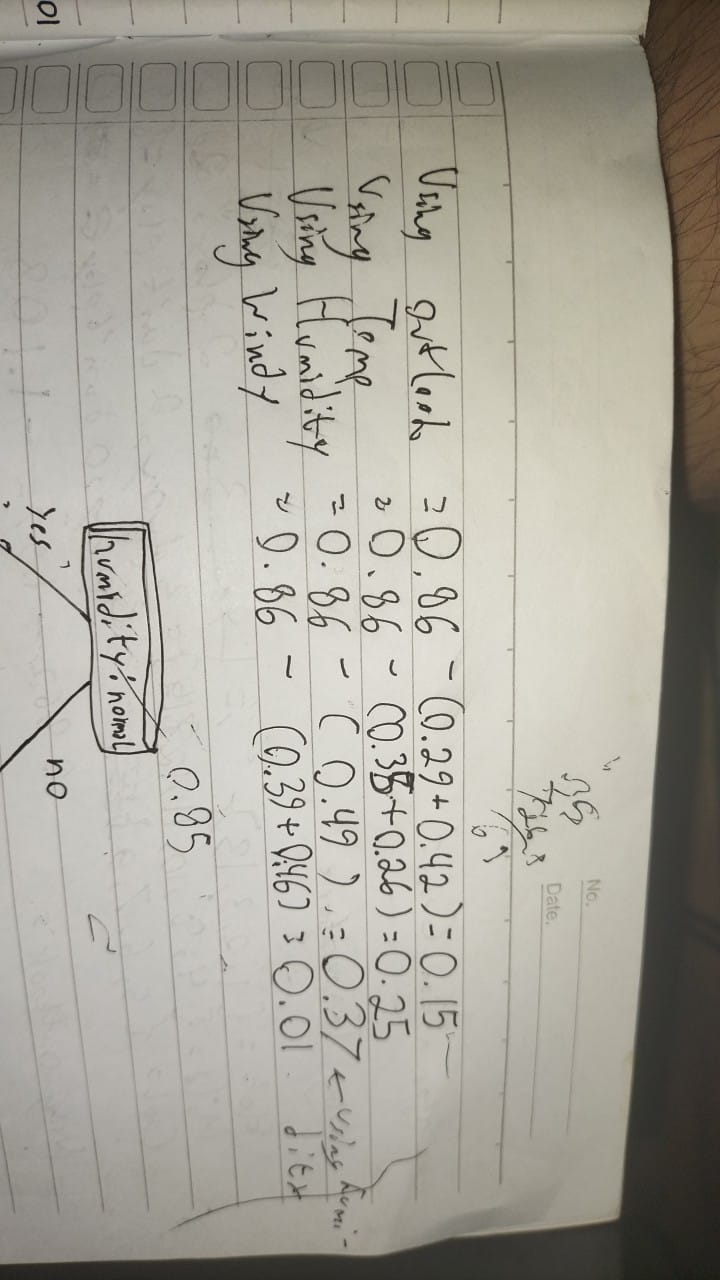 No.
Date.
Using outlook = 0.86 - (0.29 + 0.42) = 0.15
Using Temp = 0.86 - (0.35 + 0.26) = 0.25
Using Humidity = 0.86 - (0.49) = 0.37 ← using humi-
Using Windy = 0.86 - (0.39 + 0.46) = 0.01 dity
0.85
humidity: normal
Yes
no
01